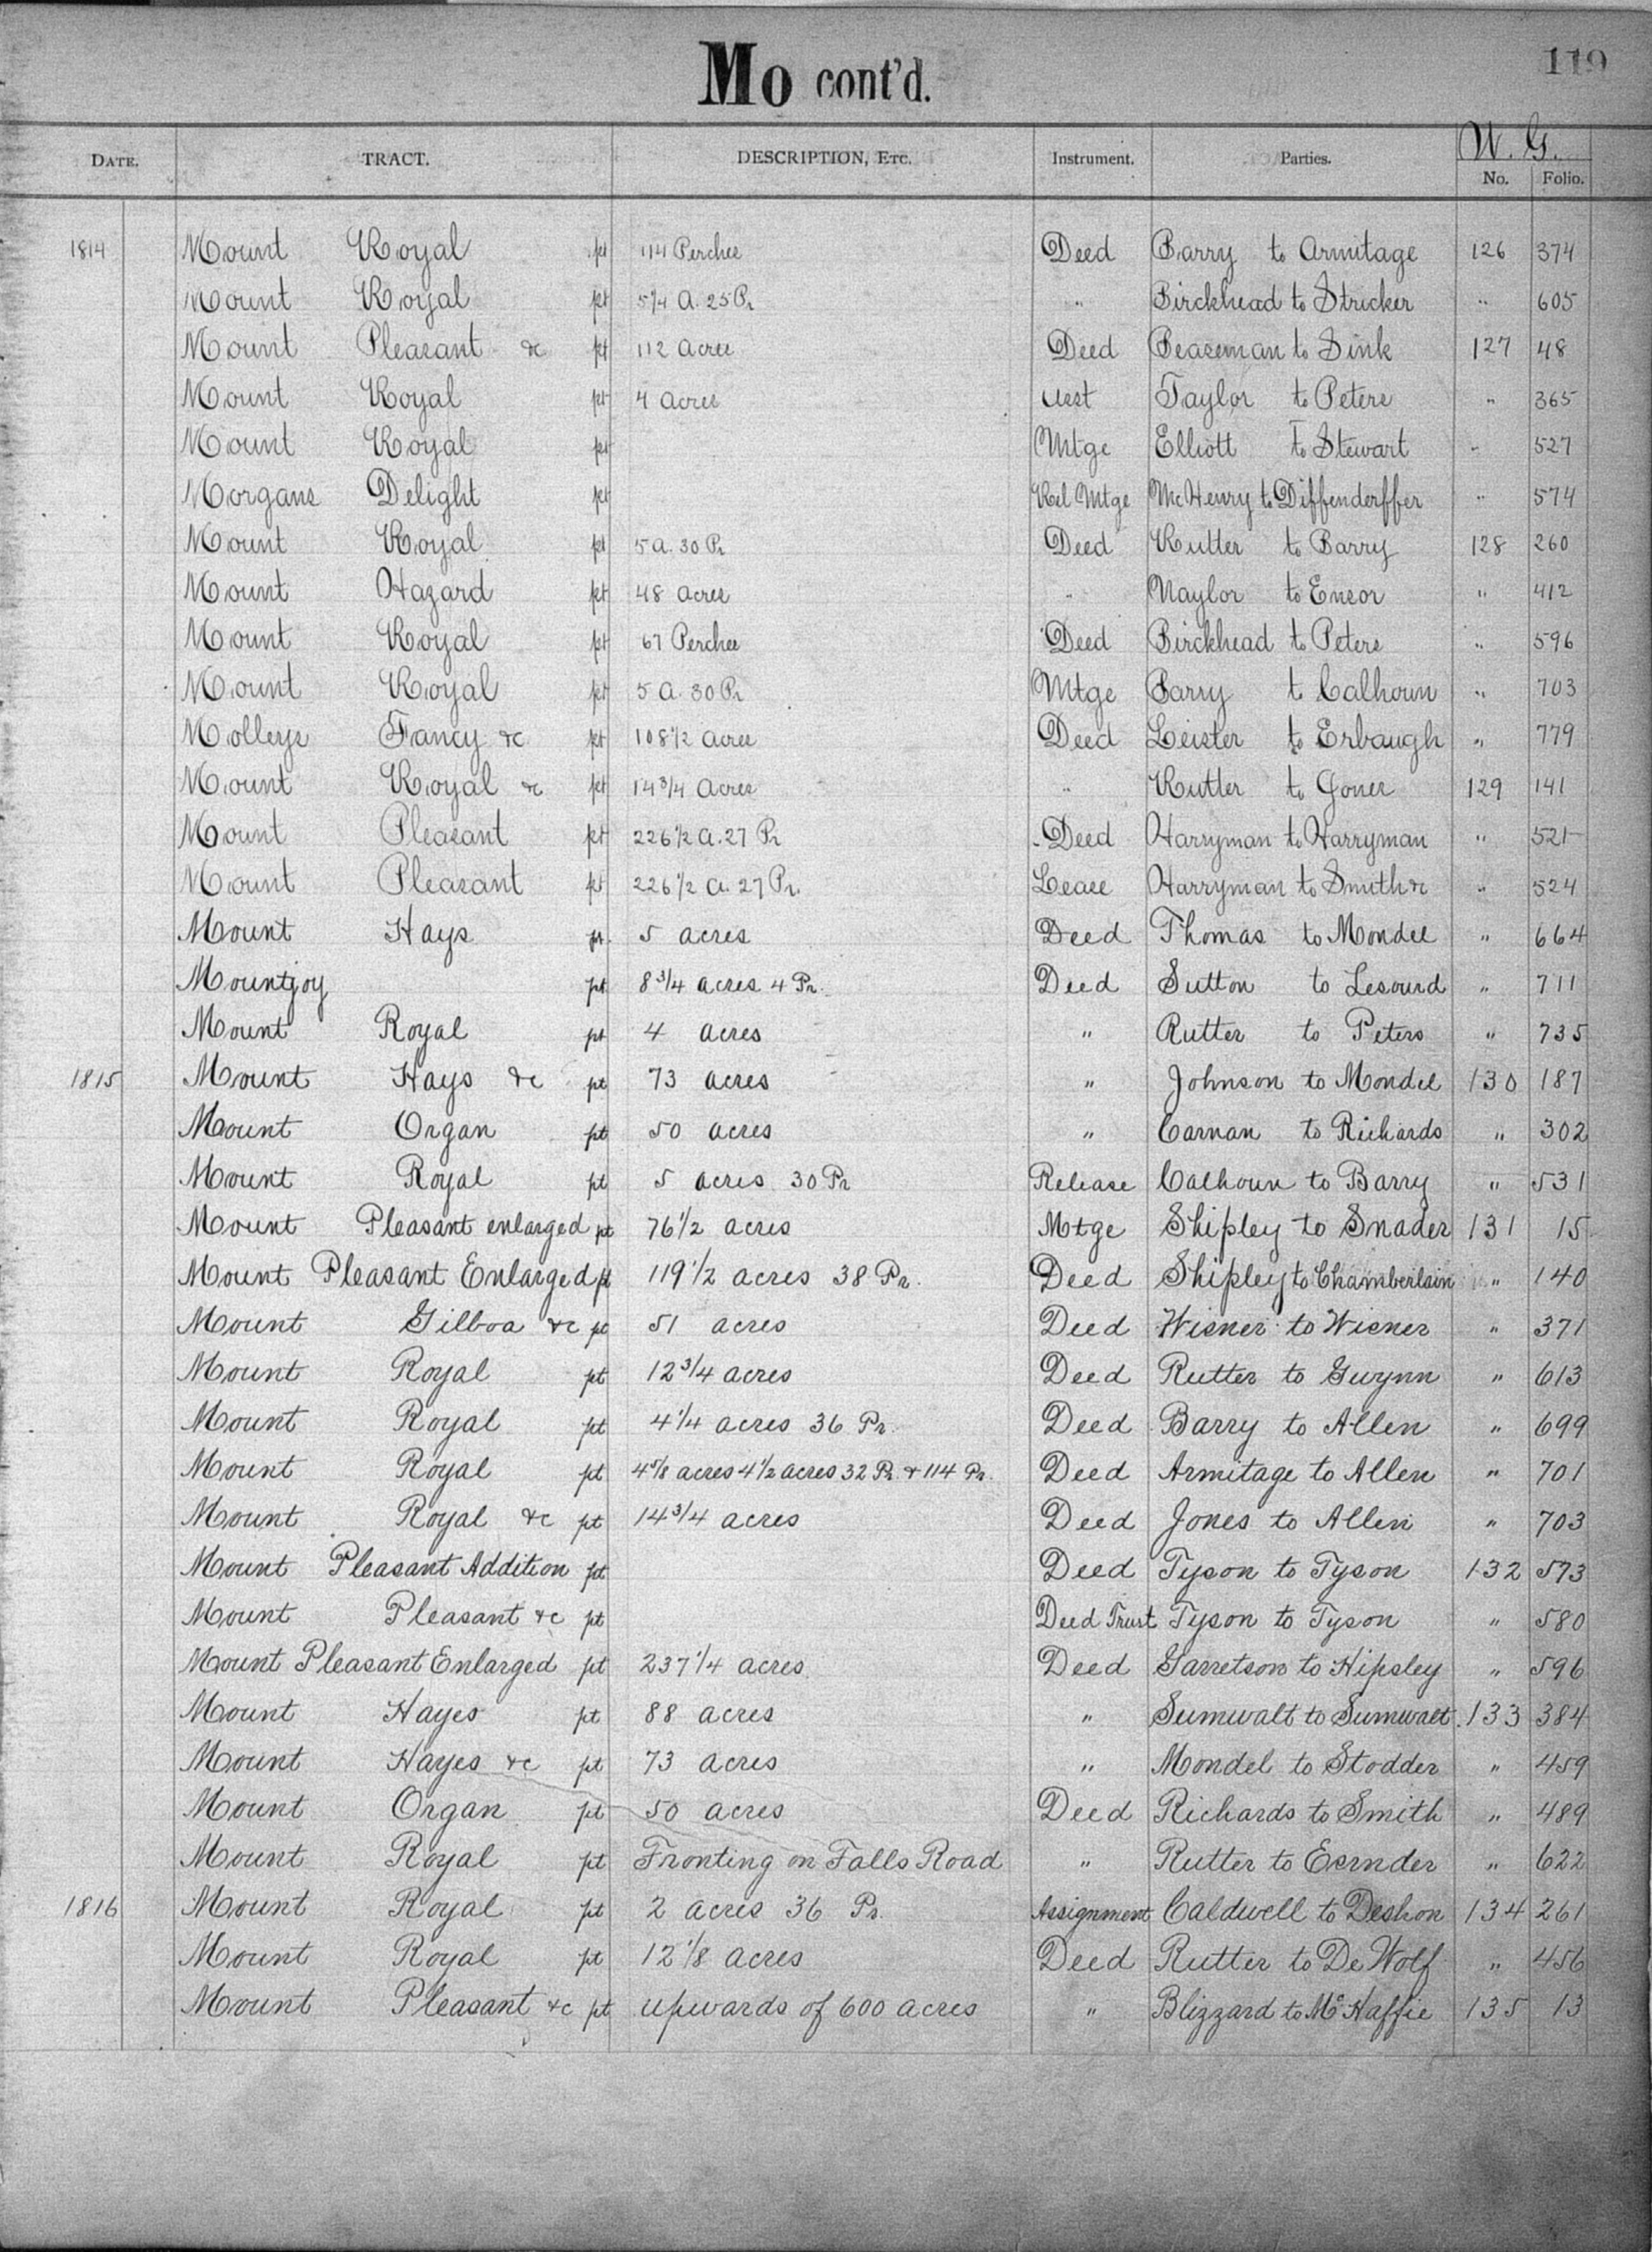 119
Mo cont'd.
DATE. TRACT. DESCRIPTION, ETC. Instrument. Parties. W. G. No. Folio.
1814 Mount Royal pt 114 Perches Deed Barry to Armitage 126 374
Mount Royal pt 5 1/4 A. 25 Pr " Birckhead to Stricker " 605
Mount Pleasant &c pt 112 Acres Deed Beaseman to Sink 127 48
Mount Royal pt 4 Acres Taylor to Peters " 365
Mount Royal pt Mtge Elliott to Stewart " 527
Morgans Delight pt Rel Mtge McHenry to Diffenderffer " 574
Mount Royal pt 5 A. 30 Pr Deed Rutter to Barry 128 260
Mount Hazard pt 48 Acres " Naylor to Ensor " 412
Mount Royal pt 67 Perches Deed Birckhead to Peters " 596
Mount Royal pt 5 A. 30 Pr Mtge Barry to Calhoun " 703
Molleys Fancy &c pt 108 1/2 Acres Deed Leister to Erbaugh " 779
Mount Royal &c pt 14 3/4 Acres " Rutter to Jones 129 141
Mount Pleasant pt 226 1/2 A. 27 Pr Deed Harryman to Harryman " 521
Mount Pleasant pt 226 1/2 A. 27 Pr. Lease Harryman to Smith &c " 524
Mount Hays pt. 5 acres Deed Thomas to Mondel " 664
Mountjoy pt 8 3/4 acres 4 Pr. Deed Sutton to Lesourd " 711
Mount Royal pt 4 acres " Rutter to Peters " 735
1815 Mount Hays &c pt 73 acres " Johnson to Mondel 130 187
Mount Organ pt 50 acres " Carnan to Richards " 302
Mount Royal pt 5 acres 30 Pr Release Calhoun to Barry " 531
Mount Pleasant enlarged pt 76 1/2 acres Mtge Shipley to Snader 131 15
Mount Pleasant Enlarged pt 119 1/2 acres 38 Pr. Deed Shipley to Chamberlain " 140
Mount Gilboa &c pt 51 acres Deed Wisner to Wisner " 371
Mount Royal pt 12 3/4 acres Deed Rutter to Gwynn " 613
Mount Royal pt 4 1/4 acres 36 Pr. Deed Barry to Allen " 699
Mount Royal pt 4 5/8 acres 4 1/2 acres 32 Pr. & 114 Pr. Deed Armitage to Allen " 701
Mount Royal &c pt 14 3/4 acres Deed Jones to Allen " 703
Mount Pleasant Addition pt Deed Tyson to Tyson 132 573
Mount Pleasant &c pt Deed Trust Tyson to Tyson " 580
Mount Pleasant Enlarged pt 237 1/4 acres Deed Garretson to Hipsley " 596
Mount Hayes pt 88 acres " Sumwalt to Sumwalt 133 384
Mount Hayes &c pt 73 acres " Mondel to Stodder " 459
Mount Organ pt 50 acres Deed Richards to Smith " 489
Mount Royal pt Fronting on Falls Road " Rutter to " 622
1816 Mount Royal pt 2 acres 36 Pr. Assignment Caldwell to Deshon 134 261
Mount Royal pt 12 1/8 acres Deed Rutter to De Wolf " 456
Mount Pleasant &c pt upwards of 600 acres " Blizzard to McHaffie 135 13